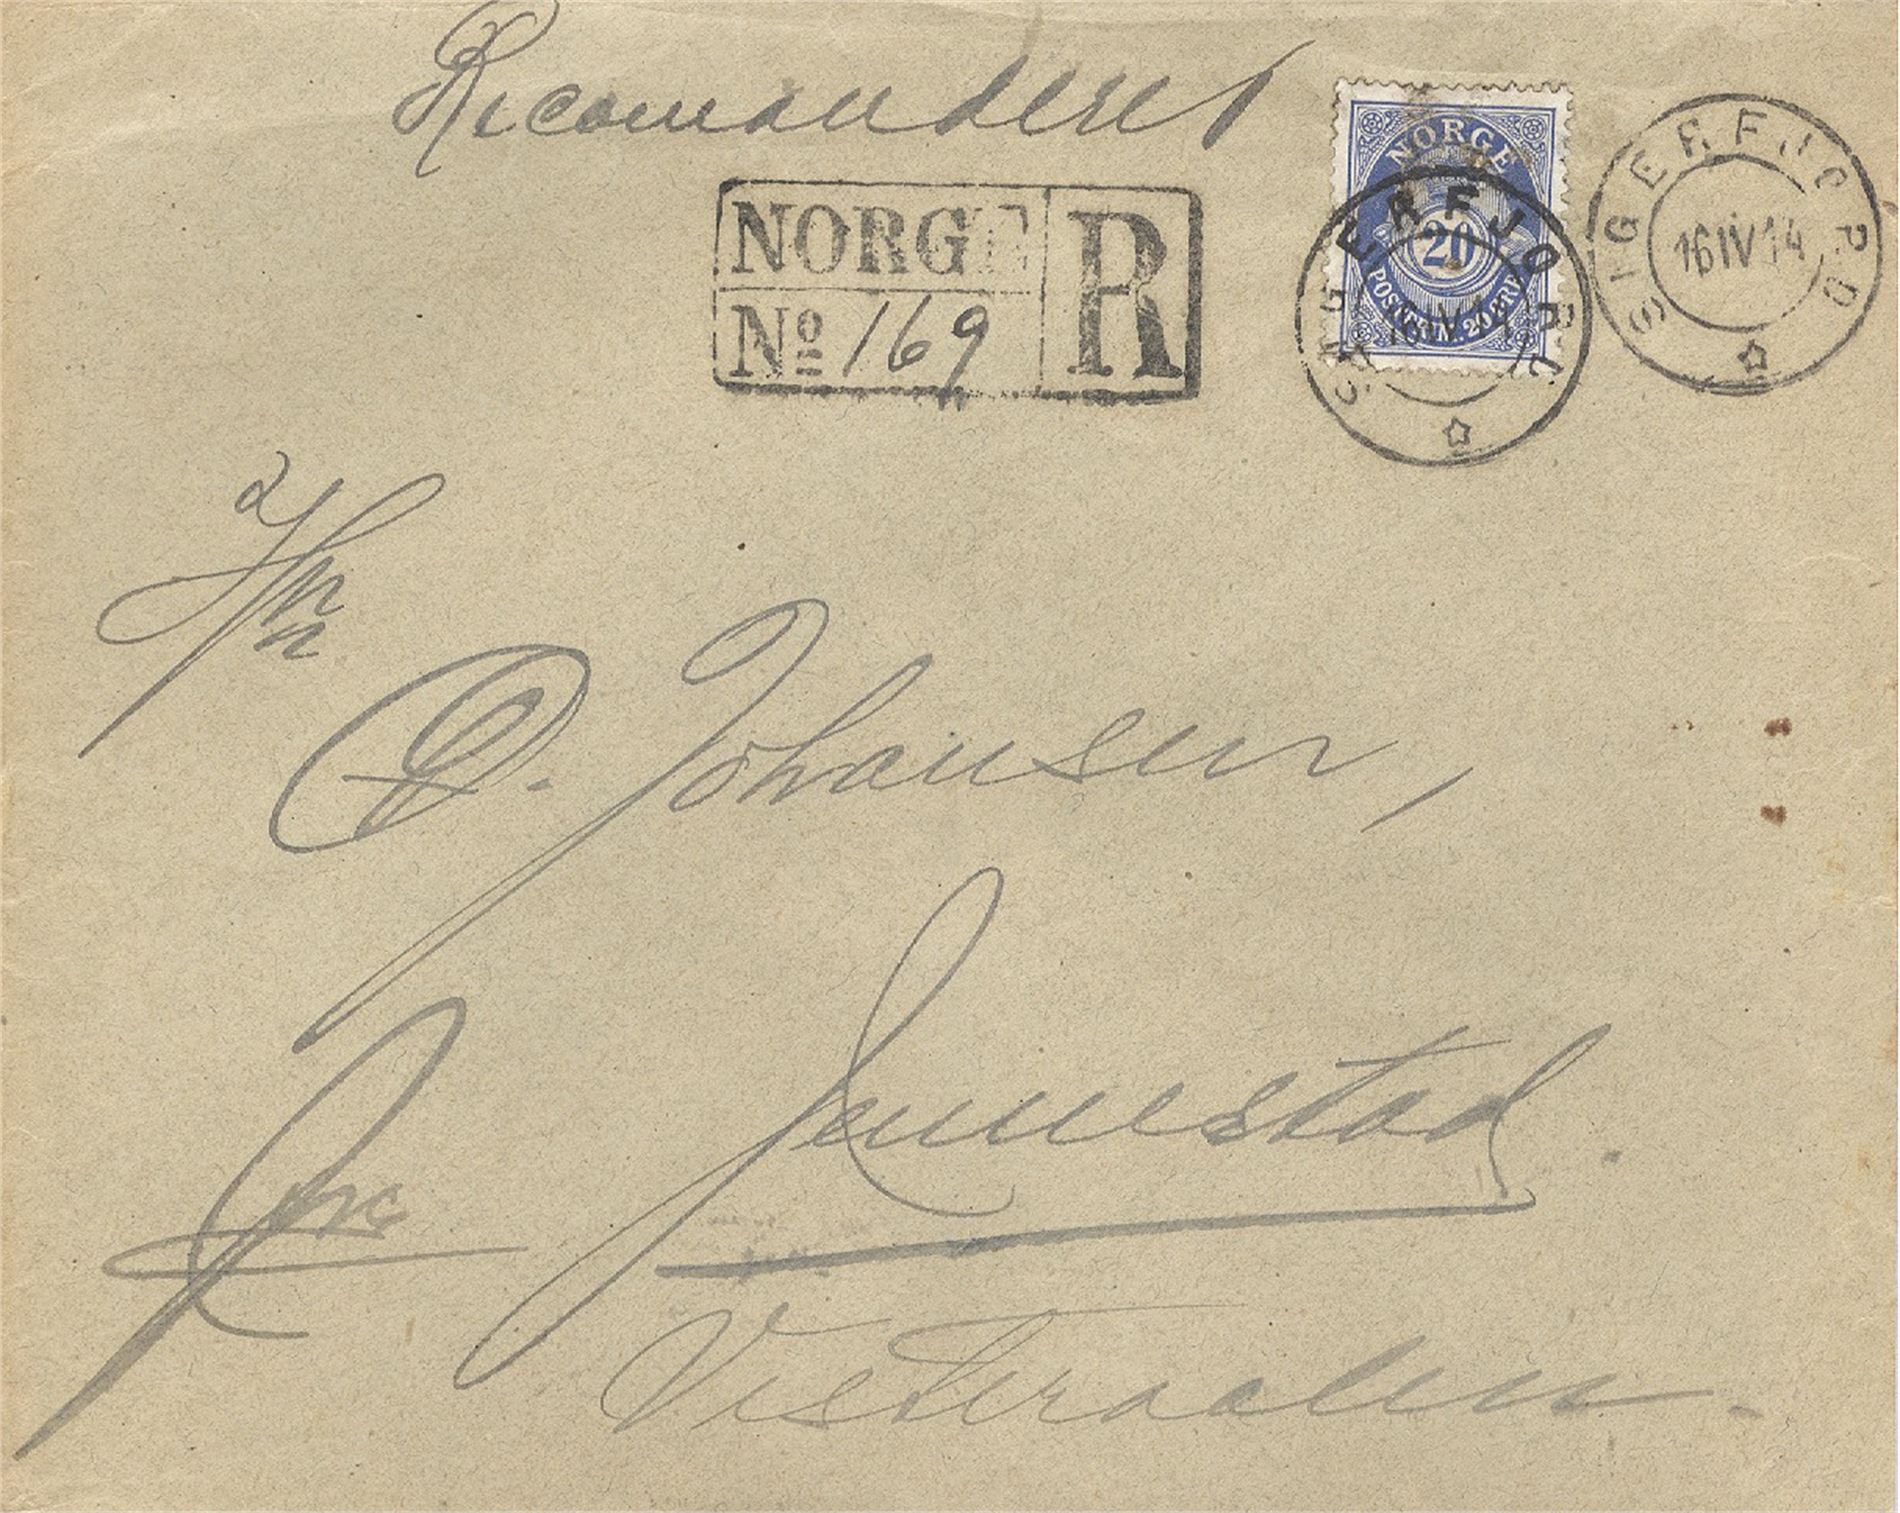 Recomanderet
NORGE
20
POSTFRIM. 20 ØRE
SIGERFJORD
16 IV 14
SIGERFJORD
16 IV 14
NORGE R
No 169
Hrr
D. Johansen,
pr. Jennestad.
Vesteraalen.